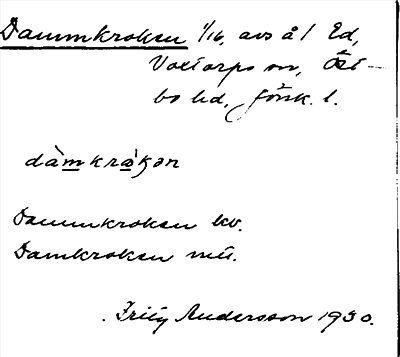 Dammkroken 1/16, avs å l Ed,
Voxtorps sn, Öst-
bo hd, Jönk. l.
dàmkrå̀kən
Dammkroken kv.
Damkroken mü.
Andersson 1930.